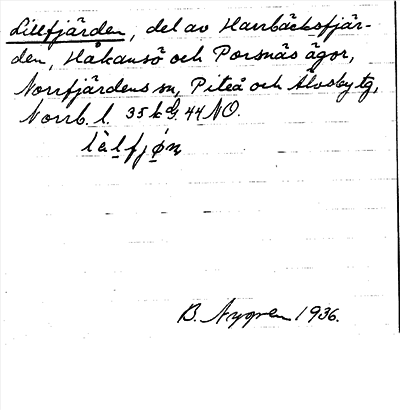 Lillfjärden, del av Harrbäcksfjär-
den, Håkansö och Porsnäs ägor,
Norrfjärdens sn, Piteå och Älvsby tg,
Norrb. l. 35 k d G. 44 NO.
B. Nygren 1936.